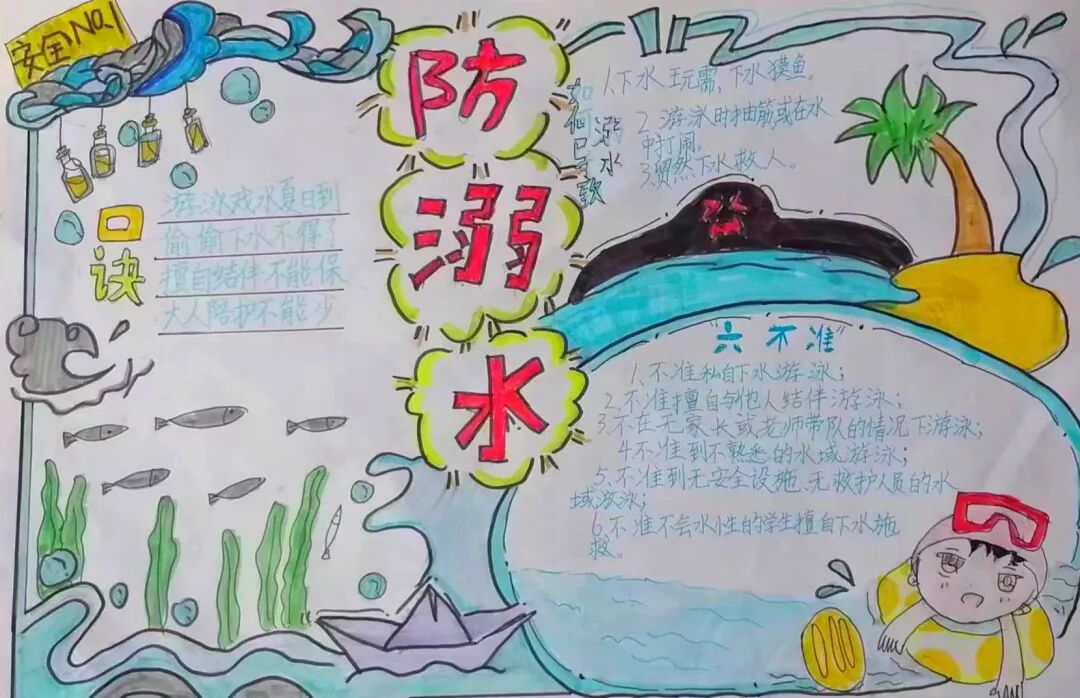 安全NO.1
防
溺
水
口
诀
游泳戏水夏日到
偷偷下水不得了
擅自结伴不能保
大人陪护不能少
溺水
1.下水玩需,下水摸鱼。
2.游泳时抽筋或在水
中打闹。
3.贸然下水救人。
"六不准"
1、不准私自下水游泳;
2.不准擅自与他人结伴游泳;
3.不在无家长或老师带队的情况下游泳;
4.不准到不熟悉的水域游泳;
5.不准到无安全设施、无救护人员的水
域游泳;
6.不准不会水性的学生擅自下水施
救。